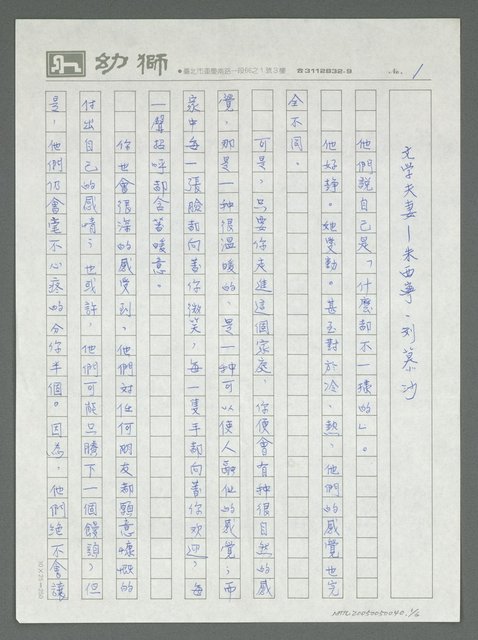 幼獅
•臺北市重慶南路一段66之1號3樓 ☎3112832-9 No. 1
文學夫妻—朱西甯.劉慕沙
他們說自己是「什麼都不一樣的」。
他好靜。她愛動。甚至對於冷、熱，他們的感覺也完
全不同。
可是，只要你走進這個家庭，你便會有種很自然的感
覺，那是一種很溫暖的、是一種可以使人融化的感覺；而
家中每一張臉都向著你微笑，每一隻手都向著你歡迎，每
一聲招呼都含著暖意。
你也會很深的感受到，他們對任何朋友都願意慷慨的
付出自己的感情；也或許，他們可能只賸下一個饅頭，但
是，他們仍會毫不心疼的分你半個。因為，他們絕不會讓
10×25=250
NMTL20050050040. 1/6